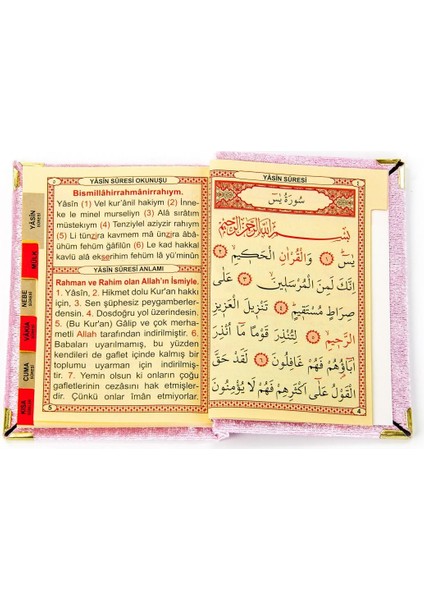 YÂSÎN SÛRESİ OKUNUŞU
Bismillâhirrahmânirrahıym.
Yâsîn (1) Vel kur'ânil hakiym (2) İnne-
ke le minel murseliyn (3) Alâ sırâtım
müstekıym (4) Tenziylel aziyzir rahiym
(5) Li tünzira kavmem mâ ünzira âbâ-
ühüm fehüm gâfilûn (6) Le kad hakkal
kavlü alâ ekserihim fehüm lâ yü'minûn
YÂSÎN SÛRESİ ANLAMI
Rahman ve Rahim olan Allah'ın İsmiyle.
1. Yâsîn, 2. Hikmet dolu Kur'an hakkı
için, 3. Sen şüphesiz peygamberler-
densin. 4. Dosdoğru yol üzerindesin.
5. (Bu Kur'an) Gâlip ve çok merha-
metli Allah tarafından indirilmiştir. 6.
Babaları uyarılmamış, bu yüzden
kendileri de gaflet içinde kalmış bir
toplumu uyarman için indirilmiş-
tir. 7. Yemin olsun ki onların çoğu
gafletlerinin cezasını hak etmişler-
dir. Çünkü onlar îman etmiyorlar.
5
YÂSÎN
SÛRESİ
MÜLK
NEBE
SÛRESİ
VAKIA
SÛRESİ
CUMA
SÛRESİ
KISA
YÂSÎN SÛRESİ
سُورَةُ يٰسٓ
بِسْمِ اللّٰهِ الرَّحْمٰنِ الرَّحِيمِ
يٰسٓ ﴿١﴾ وَالْقُرْاٰنِ الْحَكِيمِ ﴿٢﴾
اِنَّكَ لَمِنَ الْمُرْسَلِينَ ﴿٣﴾ عَلٰى
صِرَاطٍ مُسْتَقِيمٍ ﴿٤﴾ تَنْزِيلَ الْعَزِيزِ
الرَّحِيمِ ﴿٥﴾ لِتُنْذِرَ قَوْمًا مَٓا اُنْذِرَ
اٰبَٓاؤُ۬هُمْ فَهُمْ غَافِلُونَ ﴿٦﴾ لَقَدْ حَقَّ
الْقَوْلُ عَلٰٓى اَكْثَرِهِمْ فَهُمْ لَا يُؤْمِنُونَ
4